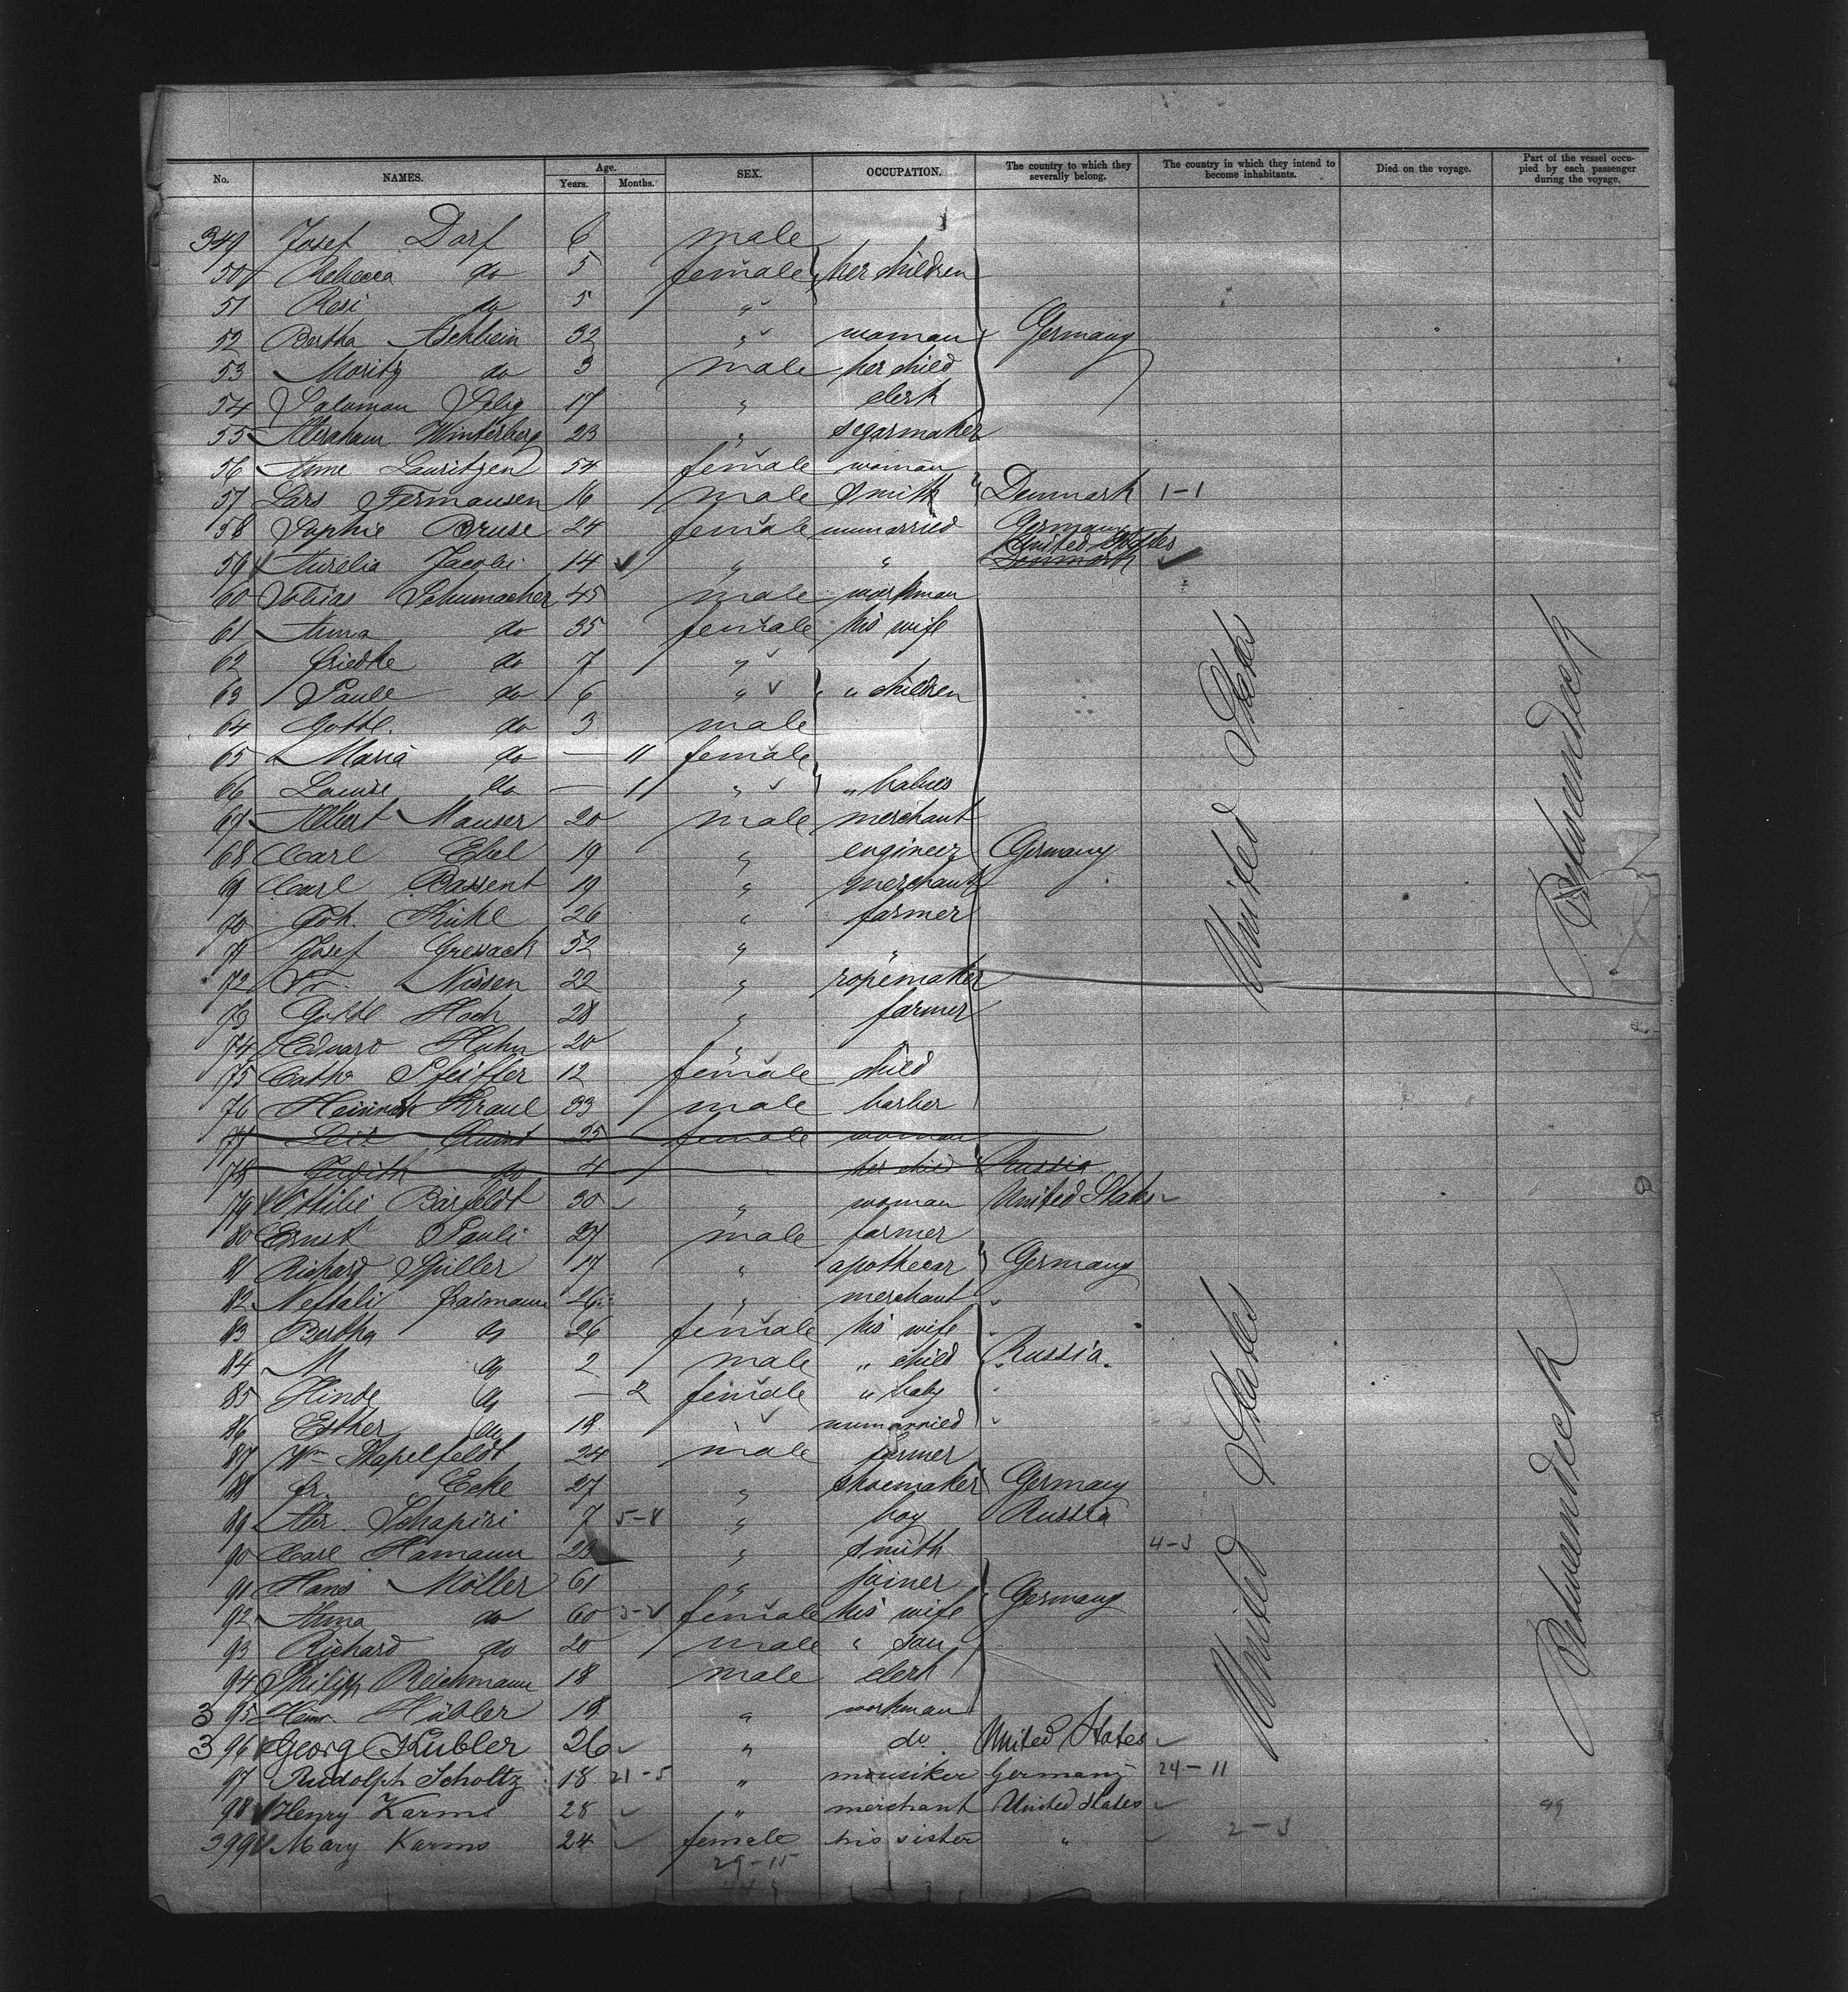 No. NAMES. Age. Years. Months. SEX. OCCUPATION. The country to which they severally belong. The country in which they intend to become inhabitants. Died on the voyage. Part of the vessel occupied by each passenger during the voyage.
349 Josef Dorf 6 male
50 Rebecca do 5 female her children
51 Resi do 5 "
52 Bertha Aschheim 32 " woman Germany
53 Moritz do 3 male her child
54 Salomon Selig 17 " clerk
55 Abraham Winterberg 23 " segarmaker
56 Anne Lauritzen 54 female woman
57 Lars Fermansen 16 male smith Denmark 1-1
58 Sophie Bruse 24 female unmarried Germany
59 Aurelia Jacobi 14 " " United States Denmark
60 Tobias Schumacher 45 male workman
61 Anna do 35 female his wife
62 Friedke do 7 "
63 Paule do 6 " " children
64 Gottl. do 3 male
65 Maria do — 11 female
66 Louise do — 11 " " babies
67 Albert Mauser 20 male merchant
68 Carl Ebel 19 " engineer Germany
69 Carl Bassent 19 " merchant
70 Joh. Kuhl 26 " farmer
71 Josef Gressack 52 " "
72 Fr. Nissen 22 " ropemaker
73 Gottl Hoch 28 " farmer
74 Eduard Huhn 20 "
75 Cath. Pfeiffer 12 female child
76 Heinrich Kraul 33 male barber
77 25 female woman
78 Judith do 4 " her child Russia
79 Ottilie Bärfeldt 30 " woman United States
80 Ernst Pauli 27 male farmer
81 Richard Spiller 17 " apothecar Germany
82 Neftali Fraimann 26 " merchant
83 Bertha do 26 female his wife
84 M do 2 male " child Russia
85 Hinde do — 2 female " baby
86 Esther do 18 " unmarried
87 Wm Stapelfeldt 24 male farmer
88 Fr. Ecke 27 " shoemaker Germany
89 Abr. Schapiri 7 5-8 " boy Russia
90 Carl Hamann 23 " smith 4-3
91 Hans Möller 61 " joiner Germany
92 Anna do 60 female his wife
93 Richard do 20 male " son
94 Philipp Reichmann 18 male clerk
395 Heinr. Hübler 18 " workman
396 Georg Kübler 26 " do United States
97 Rudolph Scholtz 18 21-5 " mousiker Germany 24-11
98 Henry Karms 28 " merchant United States
399 Mary Karms 24 female his sister " 2-3
29-15
United States
Betweendeck
United States
Betweendeck